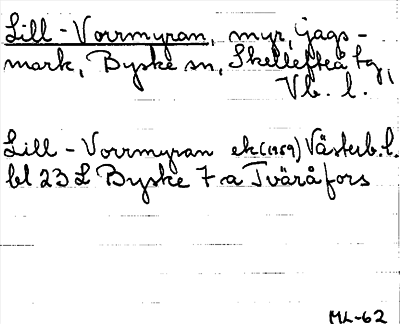 Lill-Vorrmyran, myr, jags-
mark, Byske sn, Skellefteå tg,
Vb. l.
Lill-Vorrmyran ek (1959) Västerb. l.
bl 23 L Byske 7 a Tväråfors
ML-62